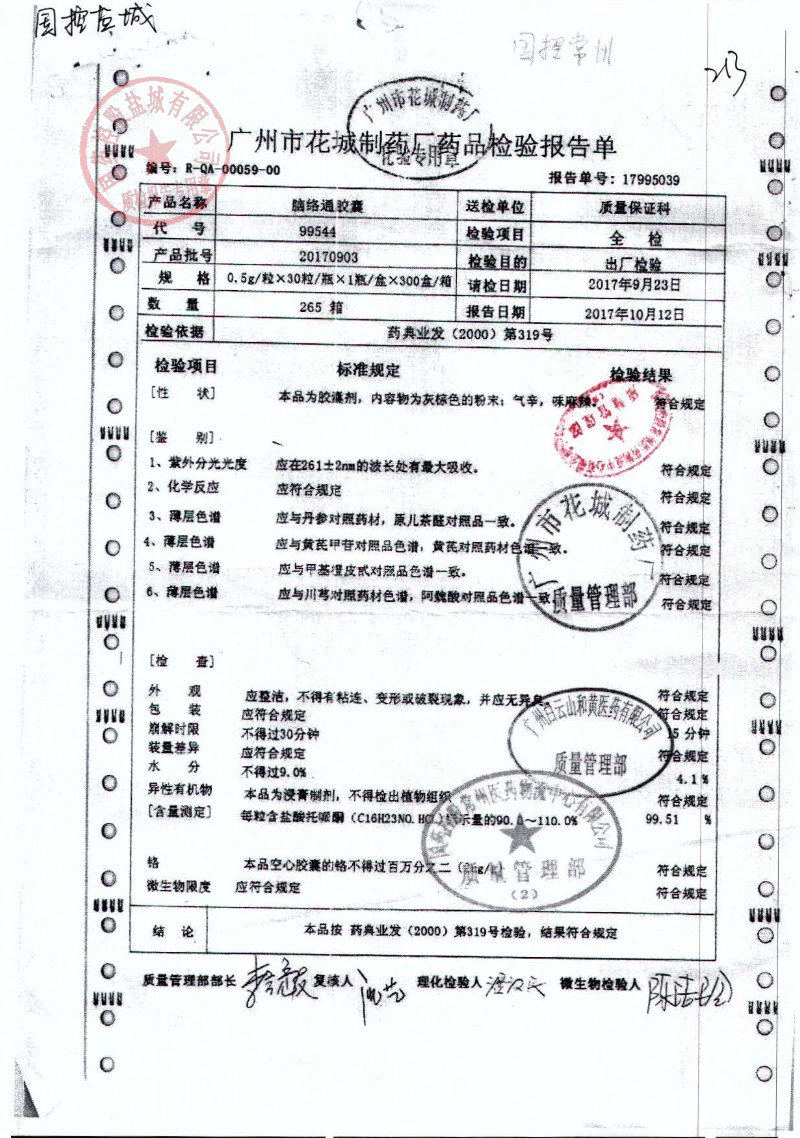 国控盐城
国控常州
213
广州市花城制药厂
化验专用章
广州市花城制药厂药品检验报告单
编号：R-QA-00059-00
报告单号：17995039
产品名称 脑络通胶囊 送检单位 质量保证科
代 号 99544 检验项目 全 检
产品批号 20170903 检验目的 出厂检验
规 格 0.5g/粒×30粒/瓶×1瓶/盒×300盒/箱 请检日期 2017年9月23日
数 量 265 箱 报告日期 2017年10月12日
检验依据 药典业发（2000）第319号
检验项目 标准规定 检验结果
[性 状] 本品为胶囊剂，内容物为灰棕色的粉末；气辛，味麻辣。 符合规定
[鉴 别]
1、紫外分光光度 应在261±2nm的波长处有最大吸收。 符合规定
2、化学反应 应符合规定 符合规定
3、薄层色谱 应与丹参对照药材，原儿茶醛对照品一致。 符合规定
4、薄层色谱 应与黄芪甲苷对照品色谱，黄芪对照药材色谱一致。 符合规定
5、薄层色谱 应与甲基橙皮甙对照品色谱一致。 符合规定
6、薄层色谱 应与川芎对照药材色谱，阿魏酸对照品色谱一致 符合规定
广州市花城制药厂
质量管理部
[检 查]
外 观 应整洁，不得有粘连、变形或破裂现象，并应无异臭。 符合规定
包 装 应符合规定 符合规定
崩解时限 不得过30分钟 5 分钟
装量差异 应符合规定
水 分 不得过9.0% 4.1 %
异性有机物 本品为浸膏制剂，不得检出植物组织 符合规定
[含量测定] 每粒含盐酸托哌酮（C16H23NO.HCl）标示量的90.0～110.0% 99.51 %
广州白云山和黄医药有限公司
质量管理部
质量管理部
（2）
铬 本品空心胶囊的铬不得过百万分之二 符合规定
微生物限度 应符合规定 符合规定
结 论 本品按 药典业发（2000）第319号检验，结果符合规定
质量管理部部长 复核人 理化检验人 微生物检验人